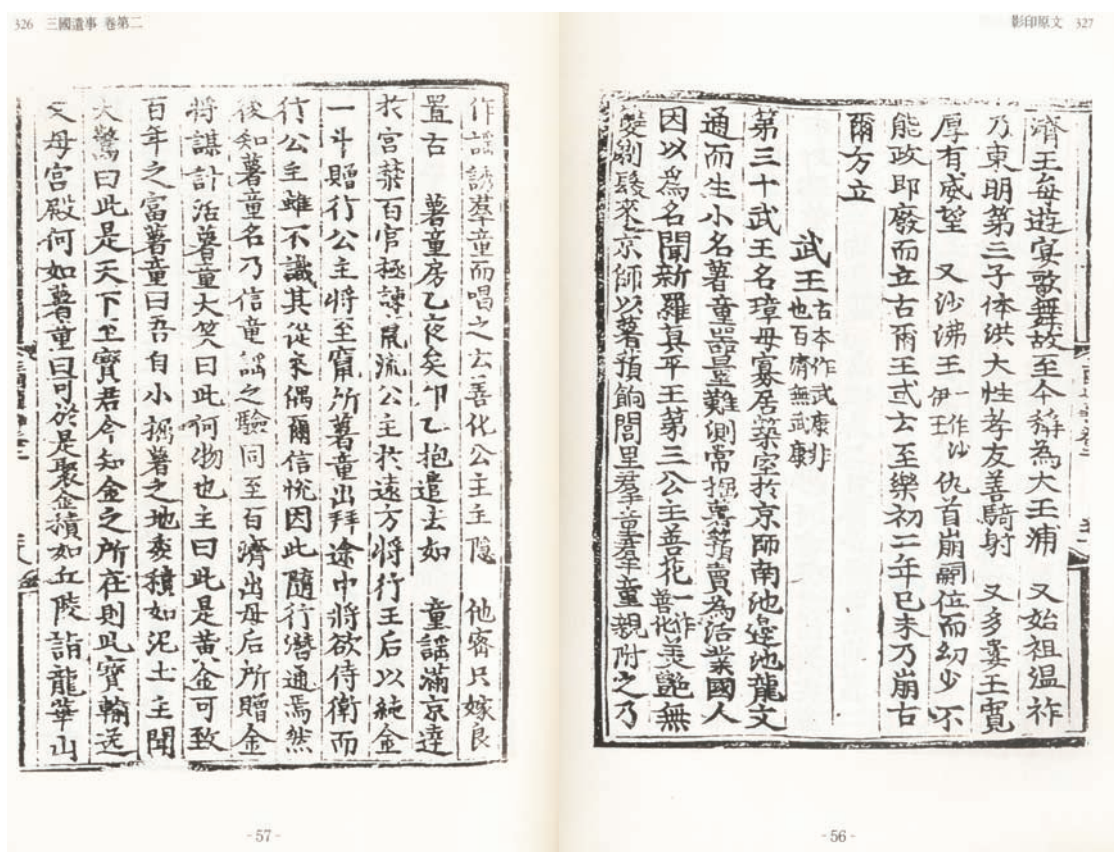 影印原文 327
濟王每遊宴歌舞故至今稱為大王浦 又始祖溫祚
乃東明第三子体洪大性孝友善騎射 又多婁王寬
厚有威望 又沙沸王一作沙伊王仇首崩嗣位而幼少不
能政即廢而立古爾王或云至樂初二年己未乃崩古
爾方立
武王古本作武康非也百濟無武康
第三十武王名璋母寡居築室於京師南池邊池龍文
通而生小名薯童器量難測常掘薯蕷賣為活業國人
因以爲名聞新羅真平王第三公主善花一作善化美艶無
雙剃髮來京師以薯蕷餉閭里羣童羣童親附之乃
-56-
326 三國遺事 卷第二
作謡誘羣童而唱之云善化公主主隠 他密只嫁良
置古 薯童房乙夜矣夘乙抱遣去如 童謡滿京達
於宮禁百官極諫竄流公主於遠方將行王后以純金
一斗贈行公主將至竄所薯童出拜途中將欲侍衛而
行公主雖不識其從來偶爾信悅因此隨行潜通焉然
後知薯童名乃信童謡之驗同至百濟出母后所贈金
將謀計活薯童大笑曰此何物也主曰此是黃金可致
百年之富薯童曰吾自小掘薯之地委積如泥土主聞
大驚曰此是天下至寶君今知金之所在則此寶輸送
父母宮殿何如薯童曰可於是聚金積如丘陵詣龍華山
-57-